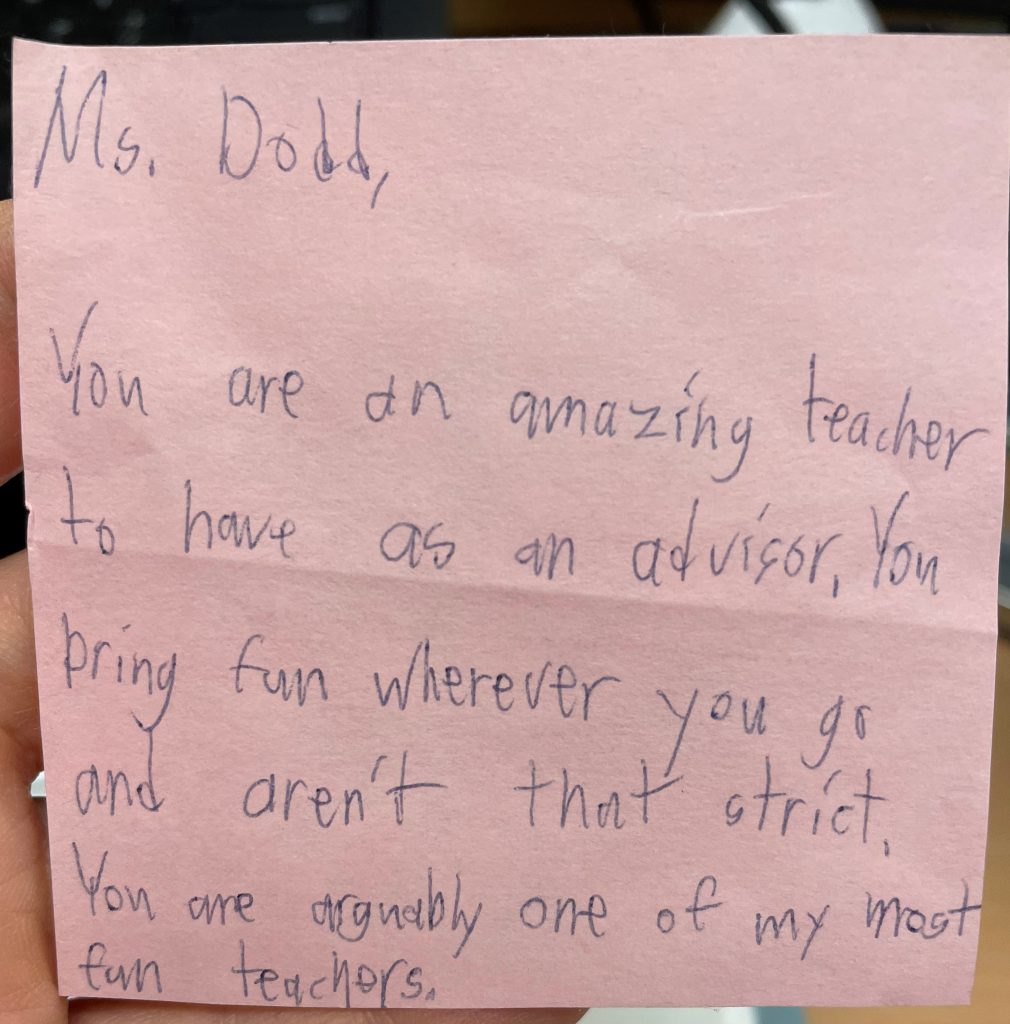 Ms. Dodd,
You are an amazing teacher
to have as an advisor. You
bring fun wherever you go
and aren't that strict.
You are arguably one of my most
fun teachers.